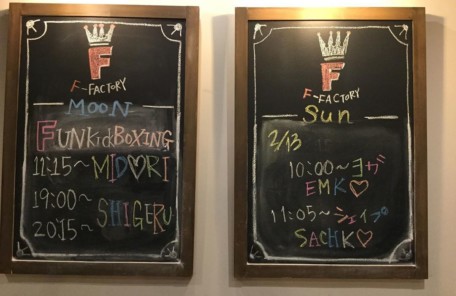 F
F-FACTORY
MOON
FUNKickBOXING
11:15～MIDORI
19:00～
20:15～
SHIGERU
F
F-FACTORY
Sun
2/13
10:00～ヨガ
EMK♡
11:05～シェイプ
SACHK♡